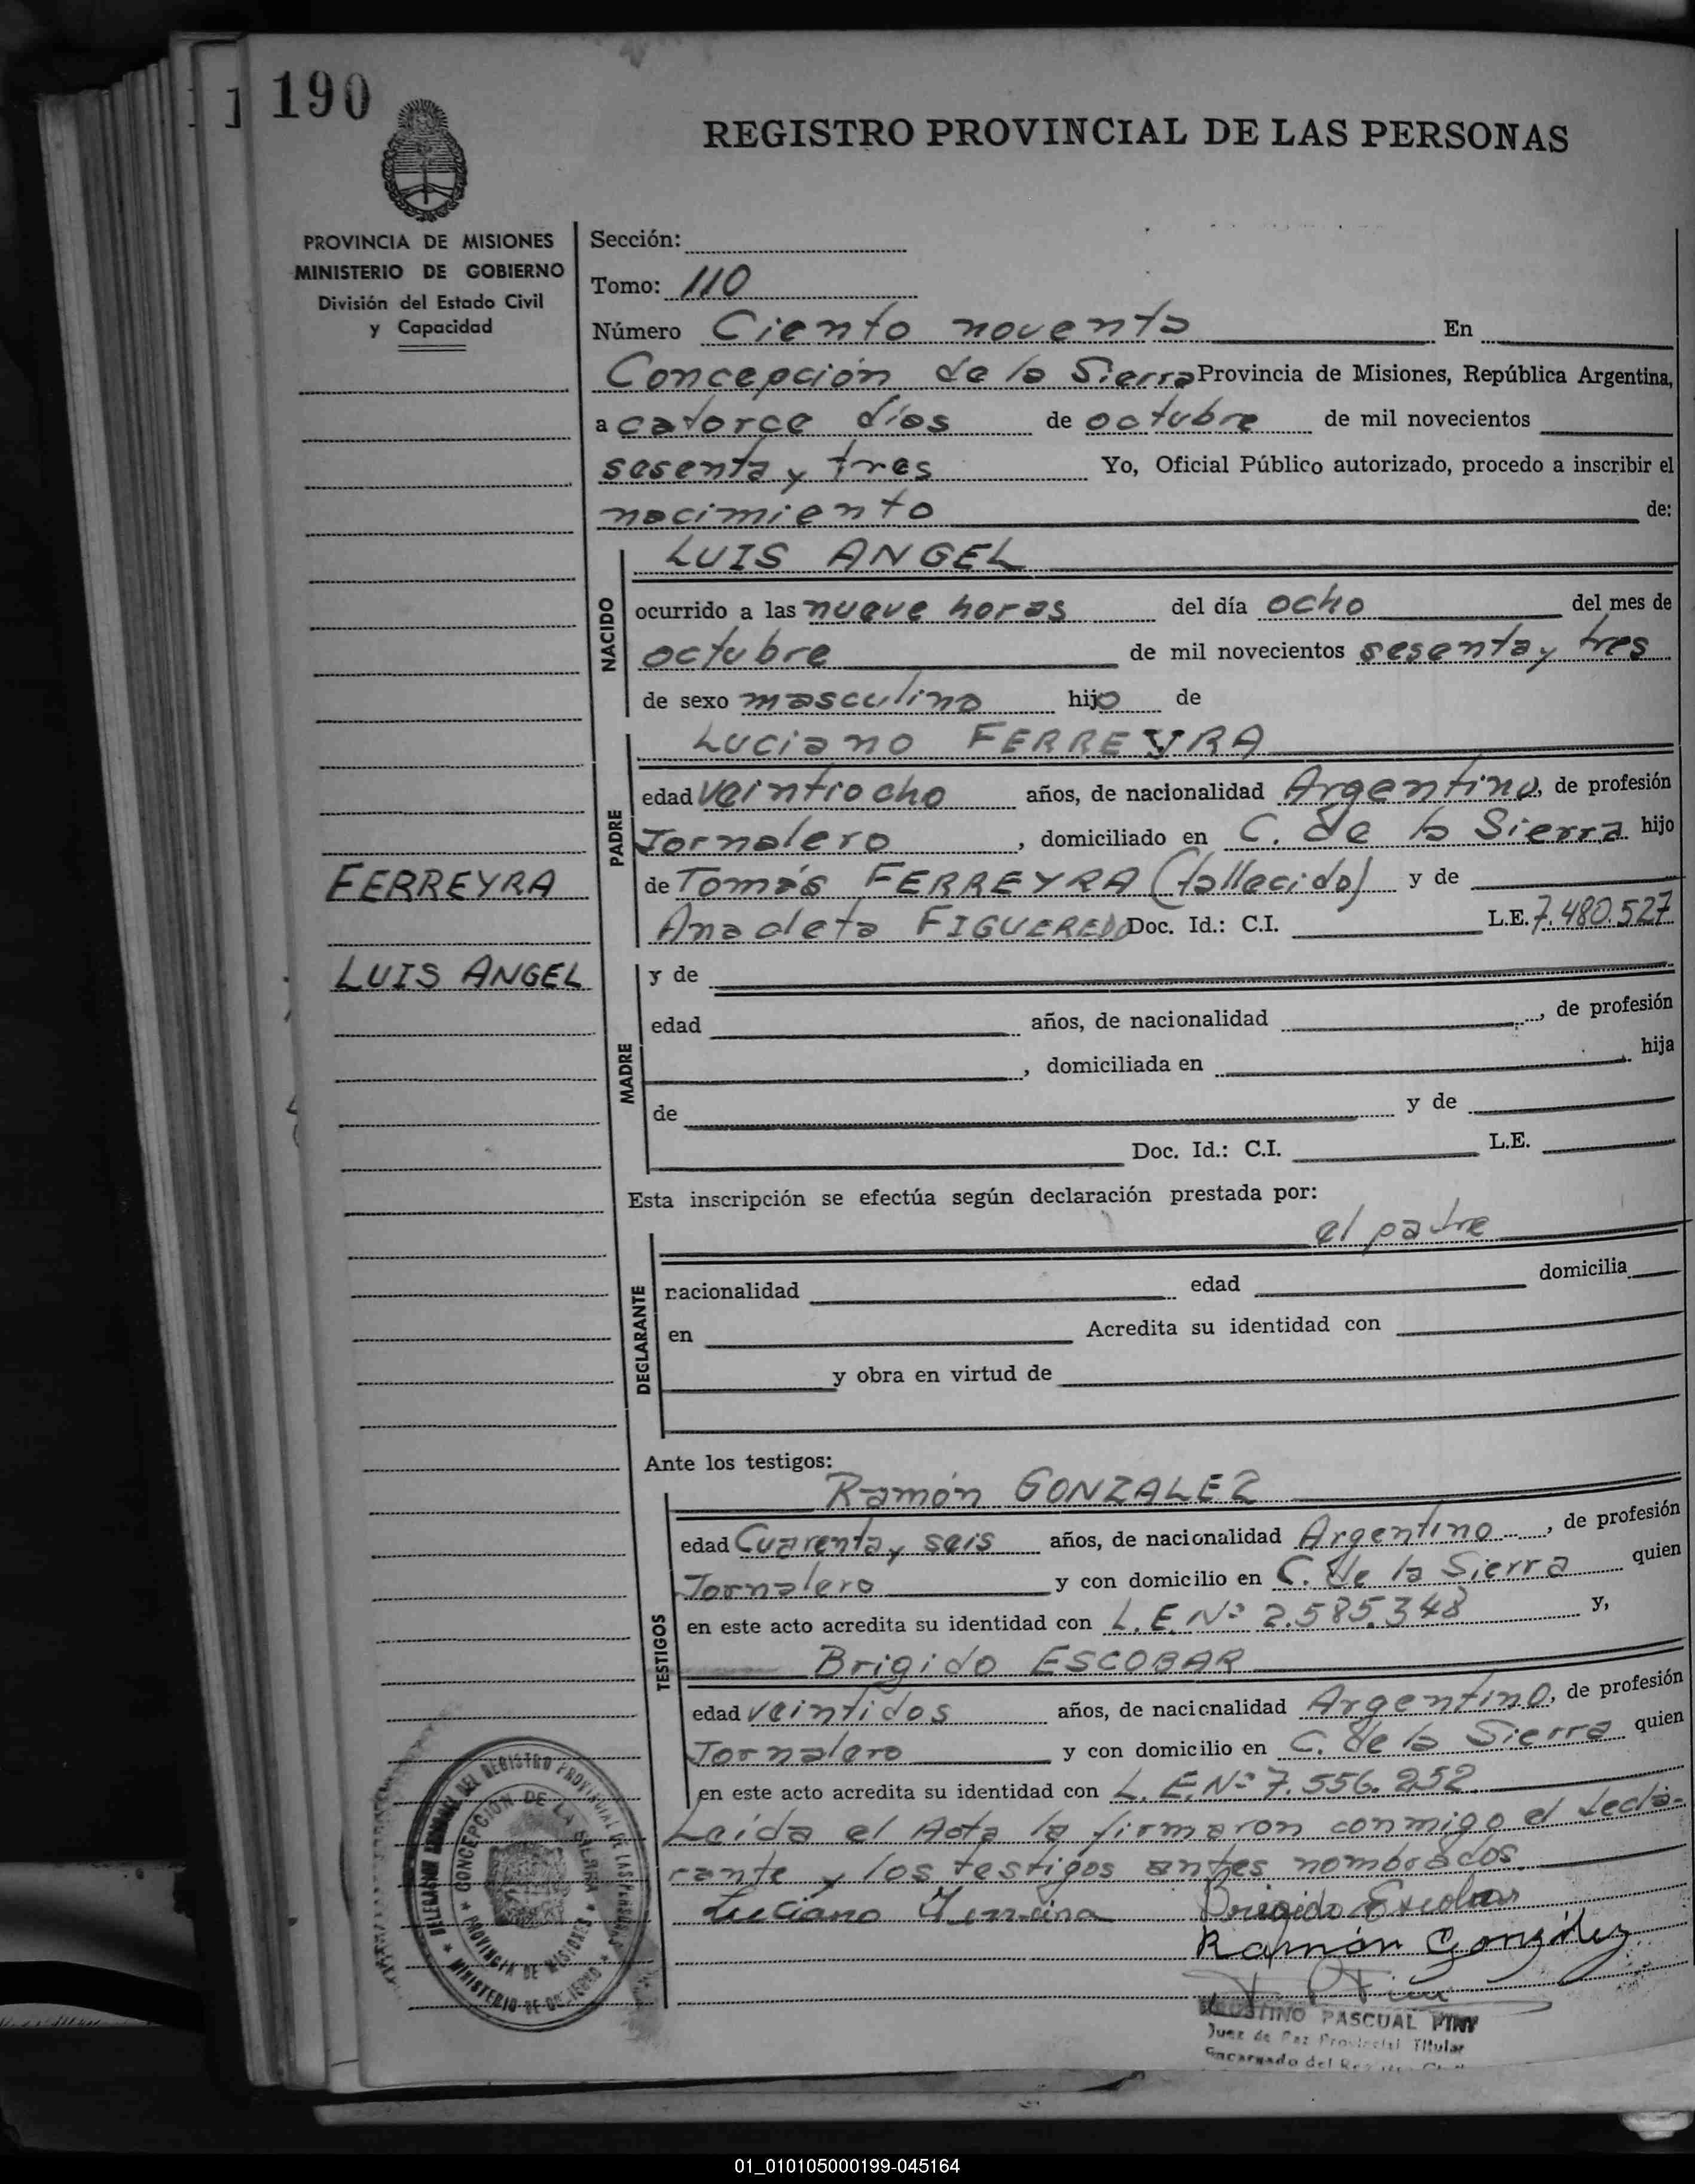 190
REGISTRO PROVINCIAL DE LAS PERSONAS
PROVINCIA DE MISIONES
MINISTERIO DE GOBIERNO
División del Estado Civil
y Capacidad
Sección:
Tomo: 110
Número Ciento noventa En
Concepción de la Sierra Provincia de Misiones, República Argentina,
a catorce días de octubre de mil novecientos
sesenta y tres Yo, Oficial Público autorizado, procedo a inscribir el
nacimiento de:
NACIDO
LUIS ANGEL
ocurrido a las nueve horas del día ocho del mes de
octubre de mil novecientos sesenta y tres
de sexo masculino hijo de
PADRE
Luciano FERREYRA
edad veintiocho años, de nacionalidad Argentino, de profesión
Jornalero, domiciliado en C. de la Sierra hijo
de Tomás FERREYRA (fallecido) y de
Anacleta FIGUEREDO Doc. Id.: C.I. L.E. 7.480.527
FERREYRA
LUIS ANGEL
MADRE
y de
edad años, de nacionalidad , de profesión
, domiciliada en hija
de y de
Doc. Id.: C.I. L.E.
Esta inscripción se efectúa según declaración prestada por:
el padre
DECLARANTE
nacionalidad edad domicilia
en Acredita su identidad con
y obra en virtud de
Ante los testigos:
TESTIGOS
Ramón GONZALEZ
edad Cuarenta y seis años, de nacionalidad Argentino, de profesión
Jornalero y con domicilio en C. de la Sierra quien
en este acto acredita su identidad con L.E.Nº 2.585.348 y,
Brigido ESCOBAR
edad veintidos años, de nacionalidad Argentino, de profesión
Jornalero y con domicilio en C. de la Sierra quien
en este acto acredita su identidad con L.E.Nº 7.556.252
Leída el Acta la firmaron conmigo el decla-
rante y los testigos antes nombrados.
Luciano Brigido Escobar
Ramón González
DELEGACION DEL REGISTRO PROVINCIAL DE LAS PERSONAS
CONCEPCION DE LA SIERRA
PROVINCIA DE MISIONES
MINISTERIO DE GOBIERNO
PASCUAL
Juez de Paz Provincial Titular
Encargado del
01_010105000199-045164